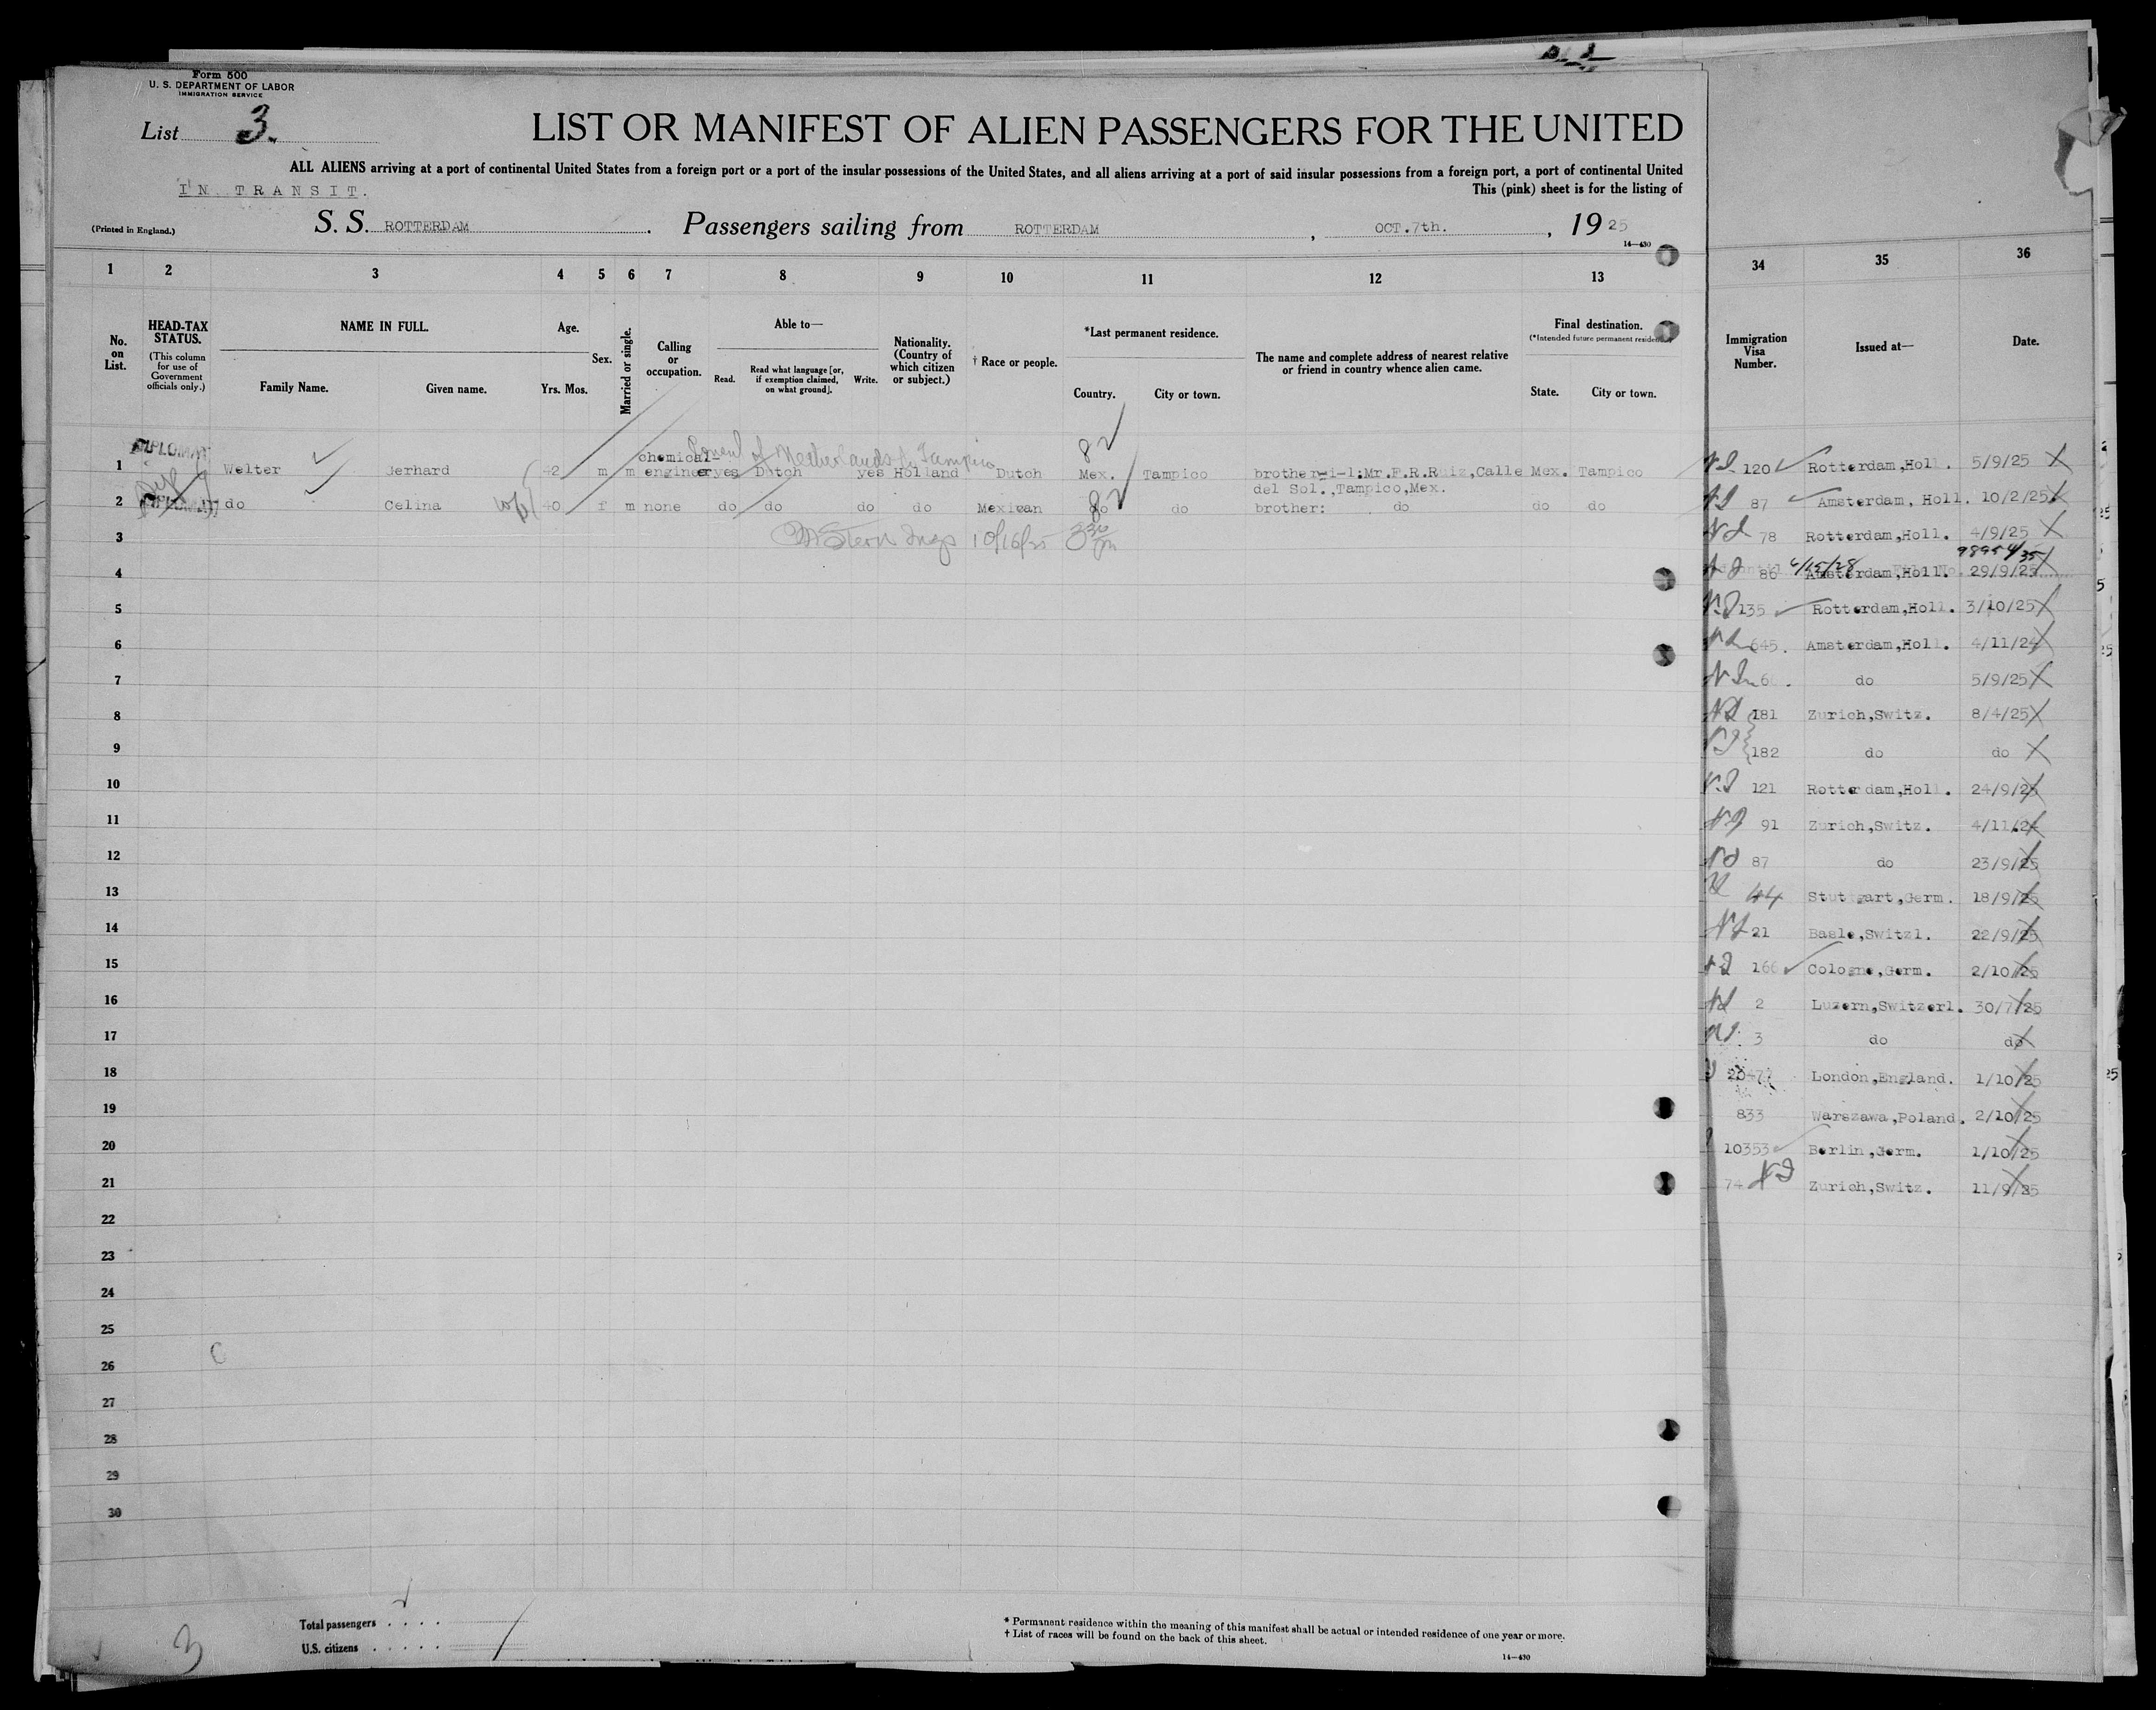 Form 500
U. S. DEPARTMENT OF LABOR
IMMIGRATION SERVICE
List 3.
LIST OR MANIFEST OF ALIEN PASSENGERS FOR THE UNITED
ALL ALIENS arriving at a port of continental United States from a foreign port or a port of the insular possessions of the United States, and all aliens arriving at a port of said insular possessions from a foreign port, a port of continental United
IN TRANSIT.
This (pink) sheet is for the listing of
(Printed in England.)
S. S. ROTTERDAM. Passengers sailing from ROTTERDAM, OCT.7th., 1925
14—430
1 2 3 4 5 6 7 8 9 10 11 12 13
No. on List.
HEAD-TAX STATUS.
(This column for use of Government officials only.)
NAME IN FULL.
Family Name. Given name.
Age.
Yrs. Mos.
Sex.
Married or single.
Calling or occupation.
Able to—
Read. Read what language [or, if exemption claimed, on what ground]. Write.
Nationality. (Country of which citizen or subject.)
† Race or people.
*Last permanent residence.
Country. City or town.
The name and complete address of nearest relative or friend in country whence alien came.
Final destination.
(*Intended future permanent residence.)
State. City or town.
DIPLOMAT
Consul of Netherlands for Tampico
82
chemical-
1 Welter Gerhard 42 m m engineer yes Dutch yes Holland Dutch Mex. Tampico brother-i-l:Mr.F.R.Ruiz,Calle Mex. Tampico
del Sol.,Tampico,Mex.
DIPLOMAT
82
2 do Celina wife 40 f m none do do do do Mexican do do brother: do do do
3 Stern Insp 10/16/25 3 30 pm
4
5
6
7
8
9
10
11
12
13
14
15
16
17
18
19
20
21
22
23
24
25
26
27
28
29
30
Total passengers . . . .
U.S. citizens . . . . .
3
* Permanent residence within the meaning of this manifest shall be actual or intended residence of one year or more.
† List of races will be found on the back of this sheet.
14—430
34 35 36
Immigration Visa Number. Issued at— Date.
120 Rotterdam,Holl. 5/9/25
87 Amsterdam, Holl. 10/2/25
78 Rotterdam,Holl. 4/9/25
6/15/28
86 Amsterdam,Holl. 29/9/25
135 Rotterdam,Holl. 3/10/25
645. Amsterdam,Holl. 4/11/24
do 5/9/25
181 Zurich,Switz. 8/4/25
182 do do
121 Rotterdam,Holl. 24/9/25
91 Zurich,Switz. 4/11/24
87 do 23/9/25
44 Stuttgart,Germ. 18/9/25
21 Basle,Switzl. 22/9/25
166 Cologne,Germ. 2/10/25
2 Luzern,Switzerl. 30/7/25
3 do do
20477 London,England. 1/10/25
833 Warszawa,Poland. 2/10/25
10353 Berlin,Germ. 1/10/25
74 Zurich,Switz. 11/9/25